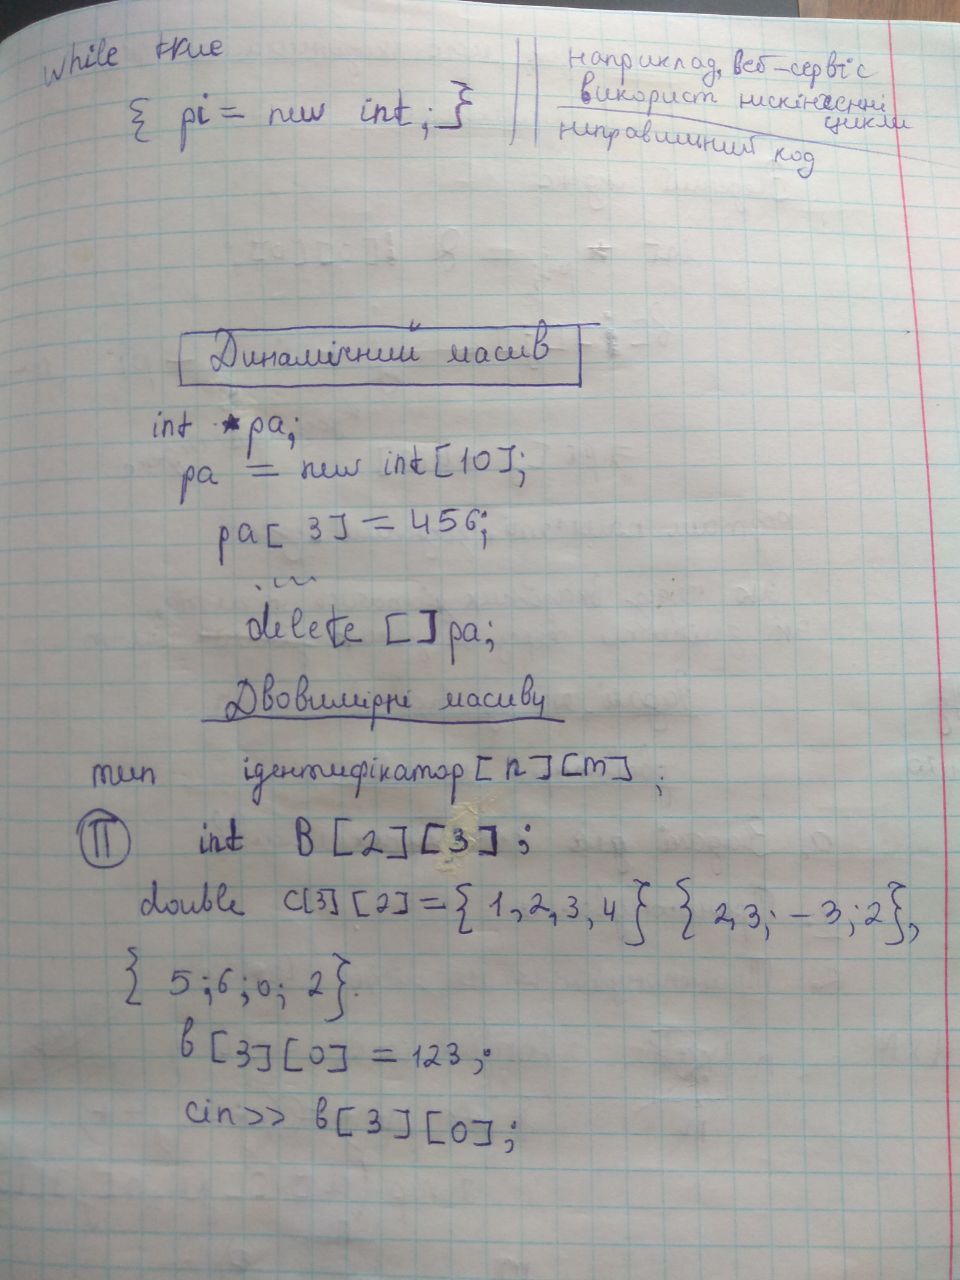 while true
{ pi = new int; }
наприклад, веб-сервіс
використ нискінченні
цикли
неправильний код
Динамічний масив
int *pa;
pa = new int[10];
pa[3] = 456;
....
delete []pa;
Двовимірні масиву
тип ідентифікатор[n][m];
П int B[2][3];
double C[3][2]={1,2,3,4} {2,3;-3;2},
{5;6;0;2}.
в[3][0] = 123;
cin>> в[3][0];